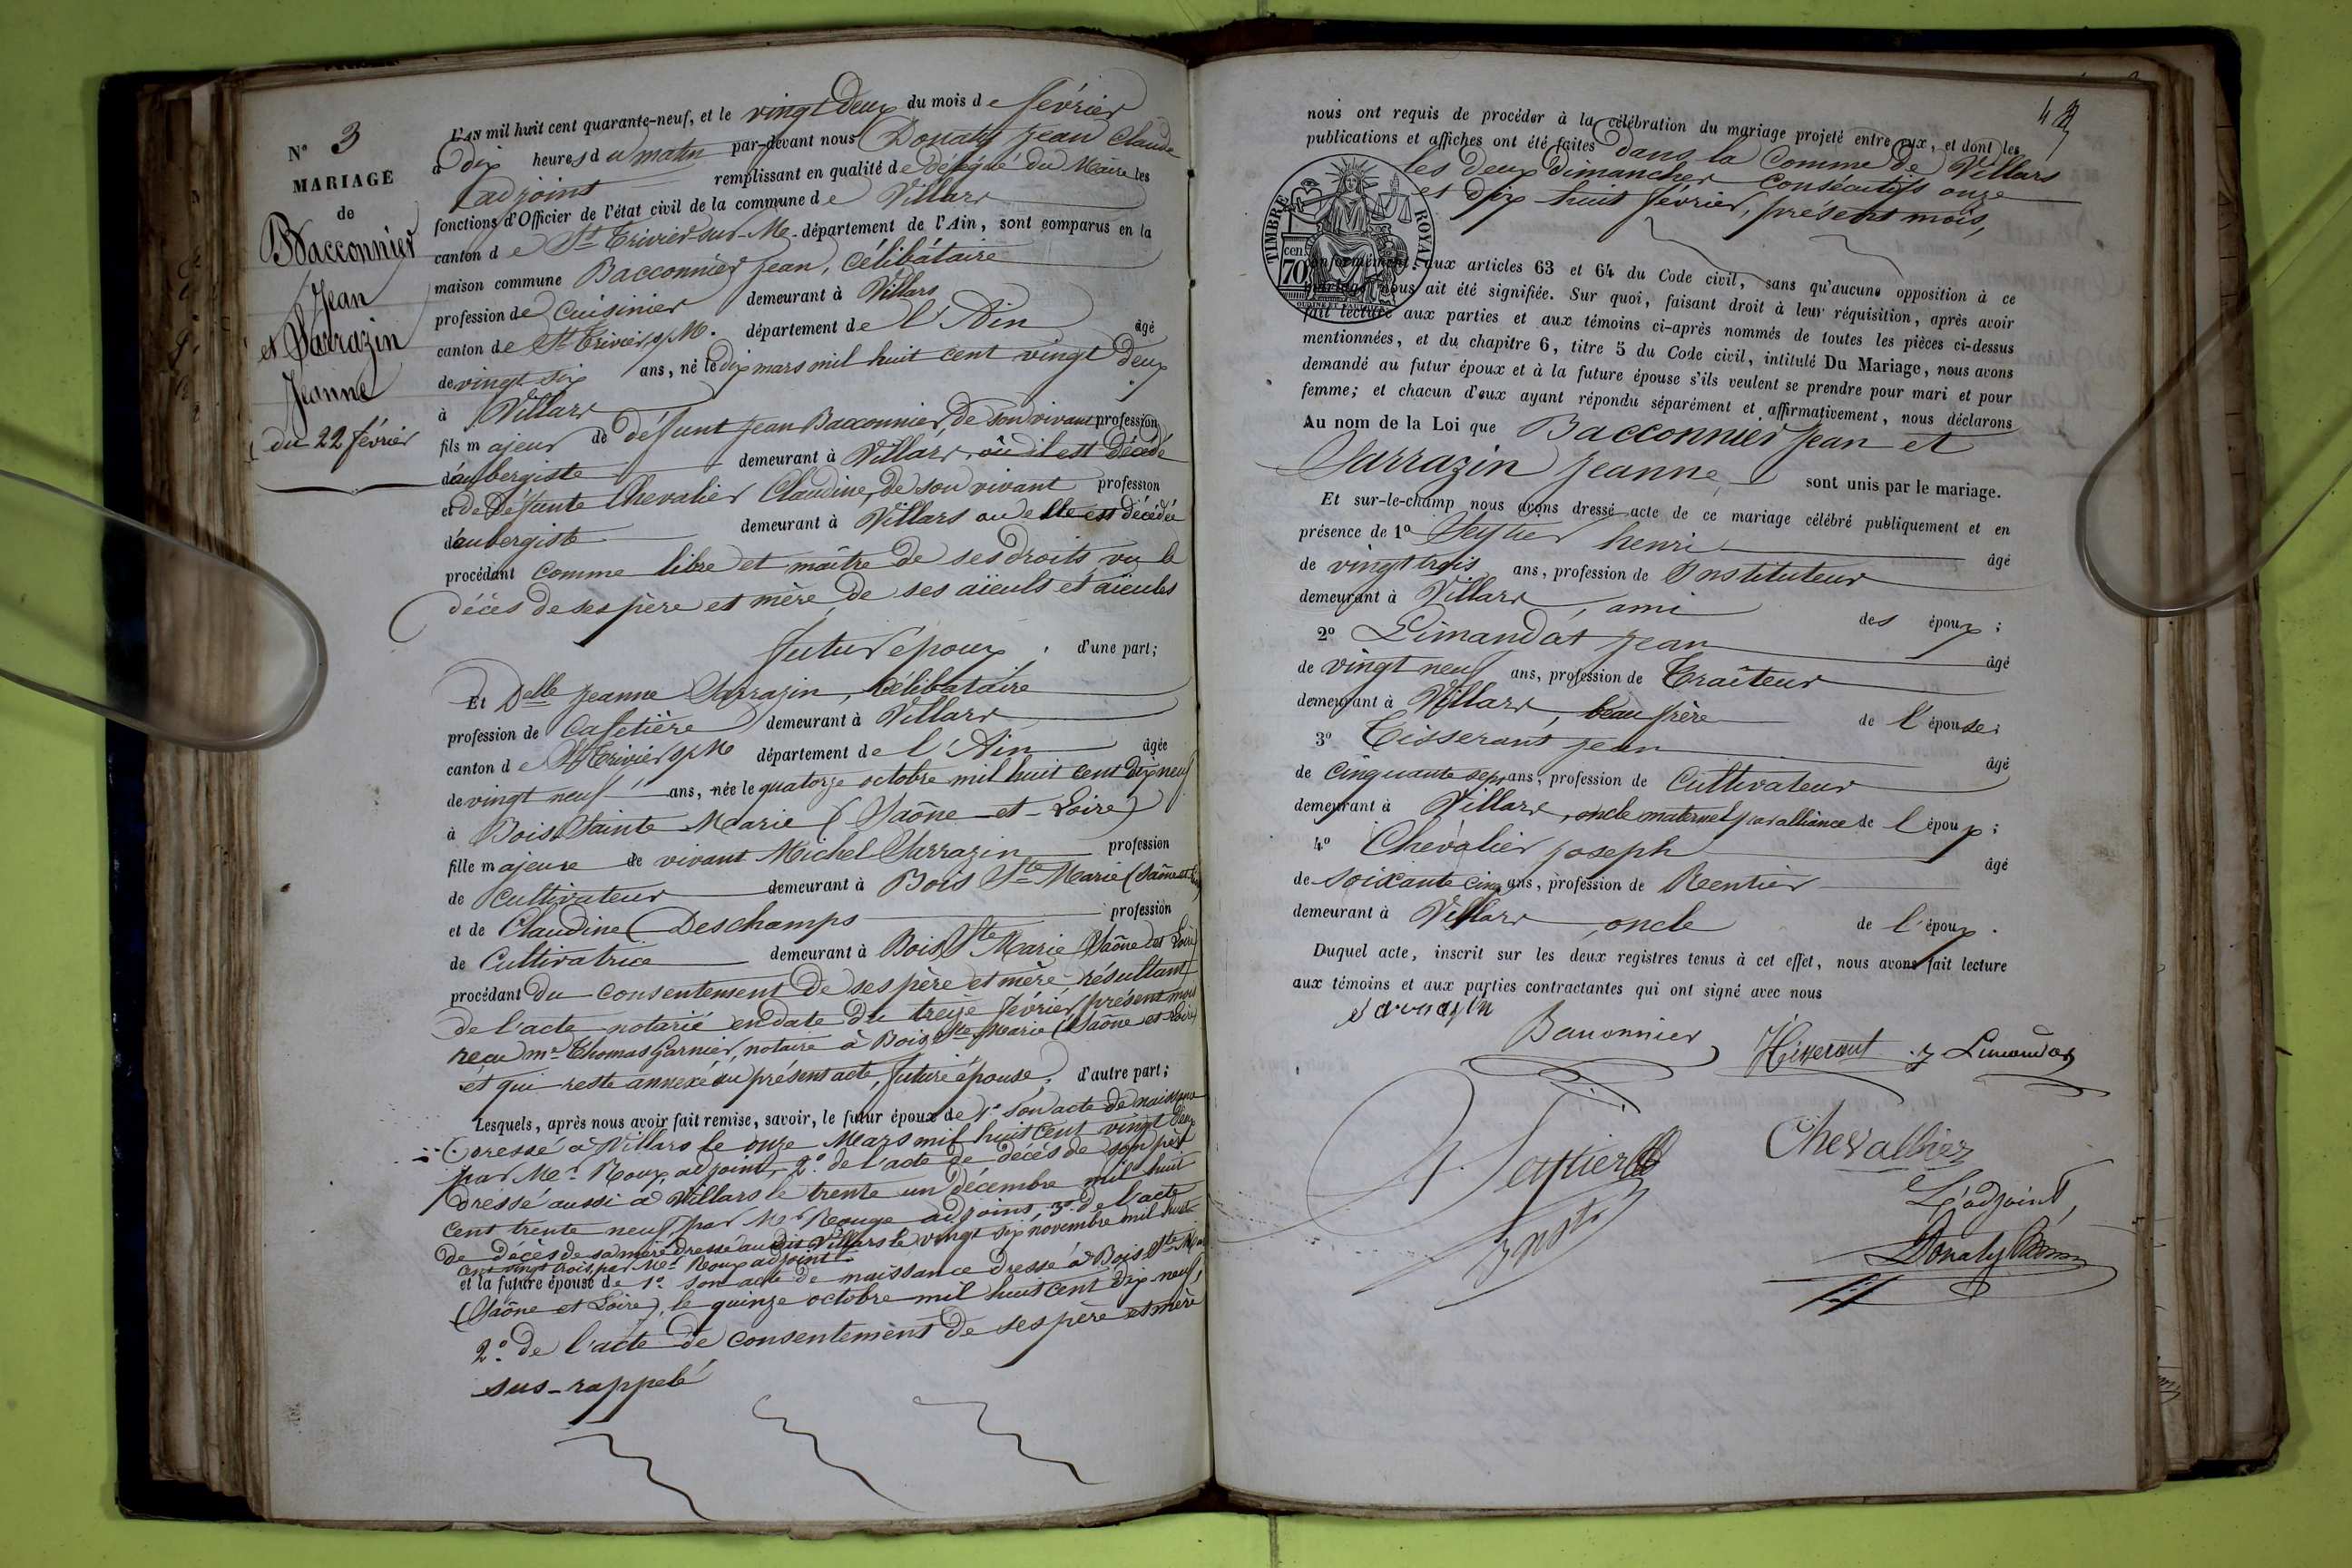 N° 3
MARIAGE
de
Bacconnier
Jean
et Sarrazin
Jeanne
du 22 février
L'AN mil huit cent quarante-neuf, et le vingt deux du mois de février
à dix heures du matin par-devant nous Donaty Jean Claude
adjoint remplissant en qualité de délégué du Maire les
fonctions d'Officier de l'état civil de la commune de Villars
canton de St Trivier-sur-M. département de l'Ain, sont comparus en la
maison commune Bacconnier Jean, célibataire
profession de cuisinier demeurant à Villars
canton de St Trivier s/M. département de l'Ain âgé
de vingt six ans, né le dix mars mil huit cent vingt deux
à Villars
fils majeur de défunt Jean Bacconnier, de son vivant profession
d'aubergiste demeurant à Villars, où il est décédé
et de défunte Chevalier Claudine, de son vivant profession
d'aubergiste demeurant à Villars ou elle est décédée
procédant comme libre et maître de ses droits vu le
décès de ses père et mère, de ses aïeuls et aïeules
futur époux, d'une part;
Et Delle Jeanne Sarrazin, célibataire
profession de Cafetière demeurant à Villars
canton de St Trivier s/M département de l'Ain âgée
de vingt neuf ans, née le quatorze octobre mil huit cent dix neuf
à Bois Sainte-Marie (Saône-et-Loire)
fille majeure de vivant Michel Sarrazin profession
de Cultivateur demeurant à Bois Ste Marie (Saône et Loire)
et de Claudine Deschamps profession
de Cultivatrice demeurant à Bois Ste Marie (Saône et Loire)
procédant du consentement de ses père et mère, résultant
de l'acte notarié en date du treize février, présent mois
reçu me Thomas Garnier, notaire à Bois Ste Marie (Saône et Loire)
et qui reste annexé au présent acte, future épouse, d'autre part;
Lesquels, après nous avoir fait remise, savoir, le futur époux de 1° son acte de naissance
dressé à Villars le onze Mars mil huit cent vingt deux
par Mr Roux, adjoint, 2° de l'acte de décès de son père
dressé aussi à Villars le trente un décembre mil huit
cent trente neuf par Mr Rouge adjoint, 3° de l'acte
de décès de sa mère dressé au dit Villars le vingt six novembre mil huit
cent vingt trois, par Mr Roux adjoint
et la future épouse de 1° son acte de naissance dressé à Bois Ste Marie
(Saône et Loire), le quinze octobre mil huit cent dix neuf,
2° de l'acte de consentement de ses père et mère
sus-rappelé
nous ont requis de procéder à la célébration du mariage projeté entre eux, et dont les
publications et affiches ont été faites dans la Comme de Villars
les deux dimanches consécutifs onze
et dix huit février, présent mois,
TIMBRE ROYAL
70 cen
conformément aux articles 63 et 64 du Code civil, sans qu'aucune opposition à ce
mariage nous ait été signifiée. Sur quoi, faisant droit à leur réquisition, après avoir
fait lecture aux parties et aux témoins ci-après nommés de toutes les pièces ci-dessus
mentionnées, et du chapitre 6, titre 5 du Code civil, intitulé Du Mariage, nous avons
demandé au futur époux et à la future épouse s'ils veulent se prendre pour mari et pour
femme; et chacun d'eux ayant répondu séparément et affirmativement, nous déclarons
Au nom de la Loi que Bacconnier Jean et
Sarrazin Jeanne, sont unis par le mariage.
Et sur-le-champ nous avons dressé acte de ce mariage célébré publiquement et en
présence de 1° Seytier henri âgé
de vingt trois ans, profession de Instituteur
demeurant à Villars, ami des époux;
2° Limandas Jean âgé
de vingt neuf ans, profession de Traîteur
demeurant à Villars, beau frère de l'épouse;
3° Tisserant Jean âgé
de cinquante sept ans, profession de Cultivateur
demeurant à Villars, oncle maternel par alliance de l'époux;
4° Chevalier Joseph âgé
de soixante cinq ans, profession de Rentier
demeurant à Villars oncle de l'époux.
Duquel acte, inscrit sur les deux registres tenus à cet effet, nous avons fait lecture
aux témoins et aux parties contractantes qui ont signé avec nous
sarrazin
Baconnier
Tisserant
J Limandas
H. Seytier
Inst
Chevallier
L'adjoint,
Donaty